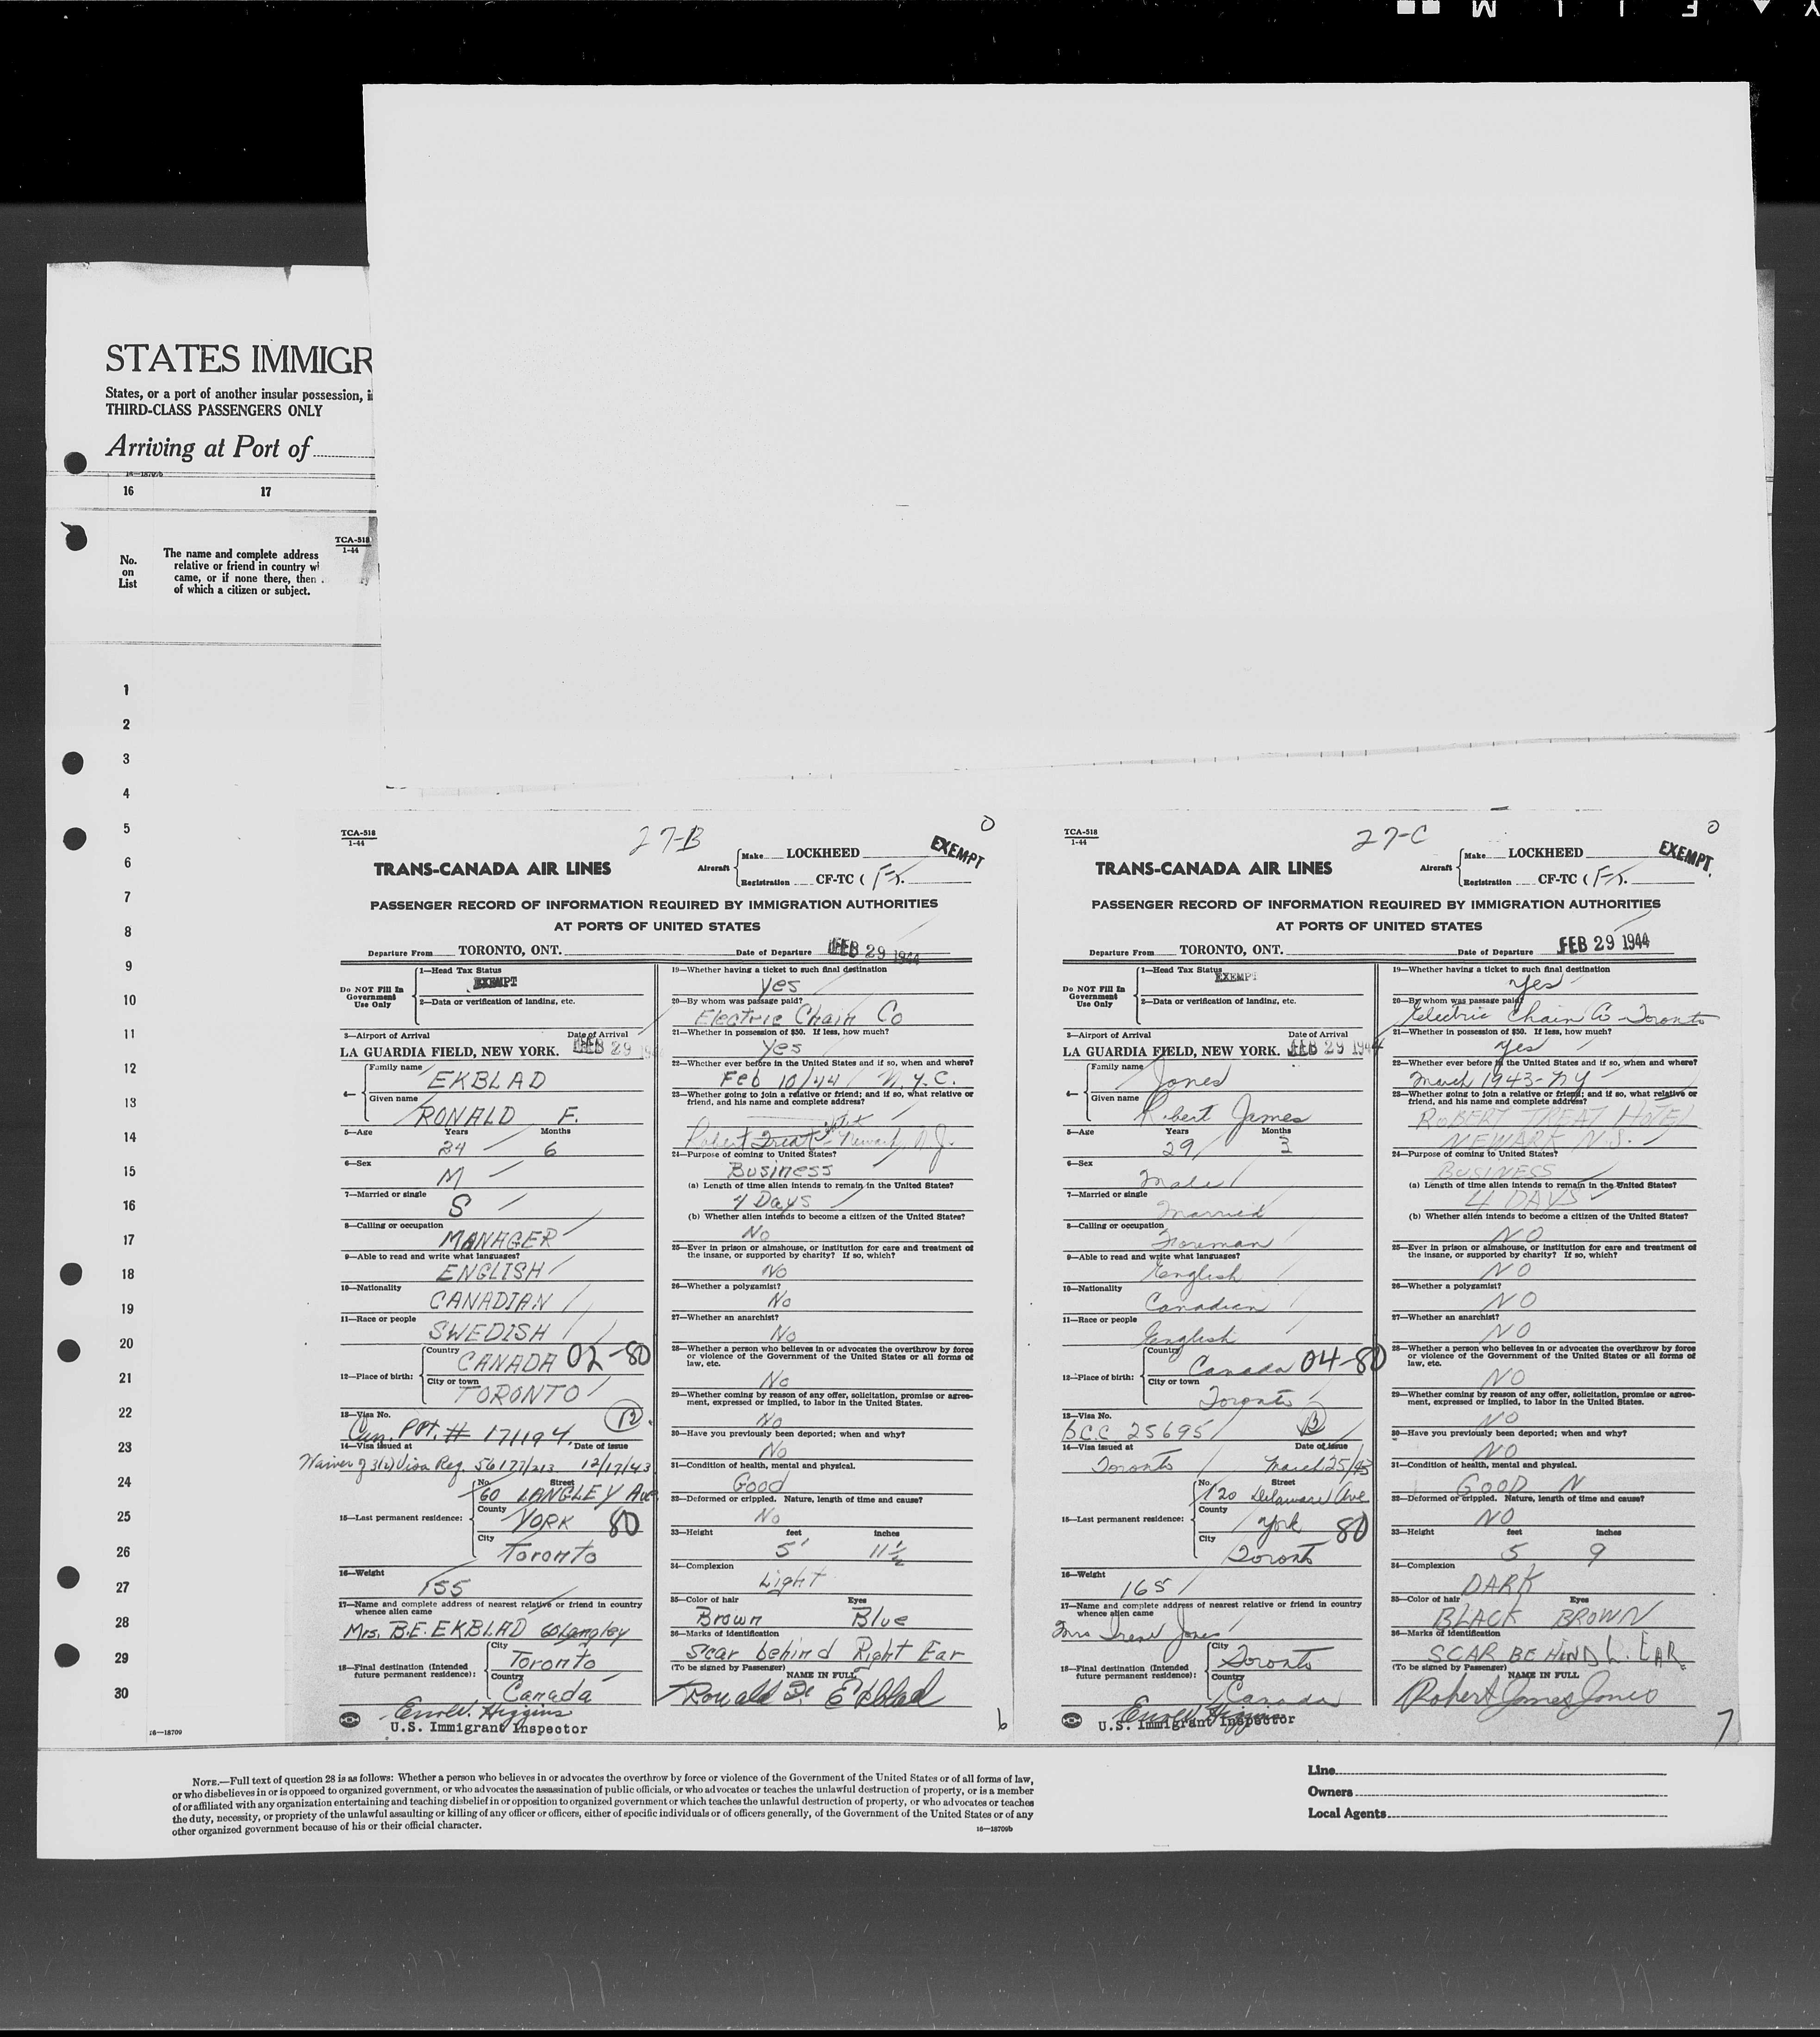 STATES IMMIGR
States, or a port of another insular possession, i
THIRD-CLASS PASSENGERS ONLY
Arriving at Port of
16—18709b
16 17
No.
on
List
The name and complete address
relative or friend in country w
came, or if none there, then
of which a citizen or subject.
TCA-518
1-44
1
2
3
4
5
6
7
8
9
10
11
12
13
14
15
16
17
18
19
20
21
22
23
24
25
26
27
28
29
30
16—18709
TCA-518
1-44
27-B
0
EXEMPT
TRANS-CANADA AIR LINES
Aircraft
Make LOCKHEED
Registration CF-TC (
PASSENGER RECORD OF INFORMATION REQUIRED BY IMMIGRATION AUTHORITIES
AT PORTS OF UNITED STATES
Departure From TORONTO, ONT. Date of Departure FEB 29 1944
Do NOT Fill In
Government
Use Only
1—Head Tax Status
EXEMPT
2—Data or verification of landing, etc.
3—Airport of Arrival Date of Arrival
LA GUARDIA FIELD, NEW YORK. FEB 29 1944
4—
Family name
EKBLAD
Given name
RONALD F.
5—Age Years Months
24 6
6—Sex
M
7—Married or single
S
8—Calling or occupation
MANAGER
9—Able to read and write what languages?
ENGLISH
10—Nationality
CANADIAN
11—Race or people
SWEDISH
12—Place of birth:
Country
CANADA 02-80
City or town
TORONTO
13—Visa No.
Can. PPt. # 171194.
14—Visa issued at Date of issue
Waiver of 3(2) Visa Reg. 56177/213 12/17/43
15—Last permanent residence:
No. Street
60 LANGLEY Ave
County
YORK 80
City
Toronto
16—Weight
155
17—Name and complete address of nearest relative or friend in country
whence alien came
Mrs. B.E. EKBLAD 60 Langley
18—Final destination (Intended
future permanent residence):
City
Toronto
Country
Canada
Higgins
U.S. Immigrant Inspector
19—Whether having a ticket to such final destination
yes
20—By whom was passage paid?
Electric Chain Co
21—Whether in possession of $50. If less, how much?
yes
22—Whether ever before in the United States and if so, when and where?
Feb 10/44 N.Y.C.
23—Whether going to join a relative or friend; and if so, what relative or
friend, and his name and complete address?
Robert Treat Hotel Newark, N.J.
24—Purpose of coming to United States?
Business
(a) Length of time alien intends to remain in the United States?
4 Days
(b) Whether alien intends to become a citizen of the United States?
No
25—Ever in prison or almshouse, or institution for care and treatment of
the insane, or supported by charity? If so, which?
No
26—Whether a polygamist?
No
27—Whether an anarchist?
No
28—Whether a person who believes in or advocates the overthrow by force
or violence of the Government of the United States or all forms of
law, etc.
No
29—Whether coming by reason of any offer, solicitation, promise or agree-
ment, expressed or implied, to labor in the United States.
No
30—Have you previously been deported; when and why?
No
31—Condition of health, mental and physical.
Good
32—Deformed or crippled. Nature, length of time and cause?
No
33—Height feet inches
5' 11½
34—Complexion
Light
35—Color of hair Eyes
Brown Blue
36—Marks of identification
Scar behind Right Ear
(To be signed by Passenger) NAME IN FULL
Ronald F. Ekblad
6
TCA-518
1-44
27-C
0
EXEMPT.
TRANS-CANADA AIR LINES
Aircraft
Make LOCKHEED
Registration CF-TC (
PASSENGER RECORD OF INFORMATION REQUIRED BY IMMIGRATION AUTHORITIES
AT PORTS OF UNITED STATES
Departure From TORONTO, ONT. Date of Departure FEB 29 1944
Do NOT Fill In
Government
Use Only
1—Head Tax Status
EXEMPT
2—Data or verification of landing, etc.
3—Airport of Arrival Date of Arrival
LA GUARDIA FIELD, NEW YORK. FEB 29 1944
4—
Family name
Jones
Given name
Robert James
5—Age Years Months
29 3
6—Sex
Male
7—Married or single
Married
8—Calling or occupation
Foreman
9—Able to read and write what languages?
English
10—Nationality
Canadian
11—Race or people
English
12—Place of birth:
Country
Canada 04-80
City or town
Toronto
13—Visa No.
B.C.C. 25695
14—Visa issued at Date of issue
Toronto March 25/43
15—Last permanent residence:
No. Street
120 Delaware Ave
County
York 80
City
Toronto
16—Weight
165
17—Name and complete address of nearest relative or friend in country
whence alien came
Mrs Irene Jones
18—Final destination (Intended
future permanent residence):
City
Toronto
Country
Canada
Higgins
U.S. Immigrant Inspector
19—Whether having a ticket to such final destination
yes
20—By whom was passage paid?
Electric Chain Co - Toronto
21—Whether in possession of $50. If less, how much?
yes
22—Whether ever before in the United States and if so, when and where?
March 1943 - NY
23—Whether going to join a relative or friend; and if so, what relative or
friend, and his name and complete address?
ROBERT TREAT HOTEL
NEWARK N.J.
24—Purpose of coming to United States?
BUSINESS
(a) Length of time alien intends to remain in the United States?
4 DAYS
(b) Whether alien intends to become a citizen of the United States?
NO
25—Ever in prison or almshouse, or institution for care and treatment of
the insane, or supported by charity? If so, which?
NO
26—Whether a polygamist?
NO
27—Whether an anarchist?
NO
28—Whether a person who believes in or advocates the overthrow by force
or violence of the Government of the United States or all forms of
law, etc.
NO
29—Whether coming by reason of any offer, solicitation, promise or agree-
ment, expressed or implied, to labor in the United States.
NO
30—Have you previously been deported; when and why?
NO
31—Condition of health, mental and physical.
GOOD N
32—Deformed or crippled. Nature, length of time and cause?
NO
33—Height feet inches
5 9
34—Complexion
DARK
35—Color of hair Eyes
BLACK BROWN
36—Marks of identification
SCAR BEHIND L. EAR.
(To be signed by Passenger) NAME IN FULL
Robert James Jones
7
NOTE.—Full text of question 28 is as follows: Whether a person who believes in or advocates the overthrow by force or violence of the Government of the United States or of all forms of law,
or who disbelieves in or is opposed to organized government, or who advocates the assassination of public officials, or who advocates or teaches the unlawful destruction of property, or is a member
of or affiliated with any organization entertaining and teaching disbelief in or opposition to organized government or which teaches the unlawful destruction of property, or who advocates or teaches
the duty, necessity, or propriety of the unlawful assaulting or killing of any officer or officers, either of specific individuals or of officers generally, of the Government of the United States or of any
other organized government because of his or their official character.
16—18709b
Line
Owners
Local Agents